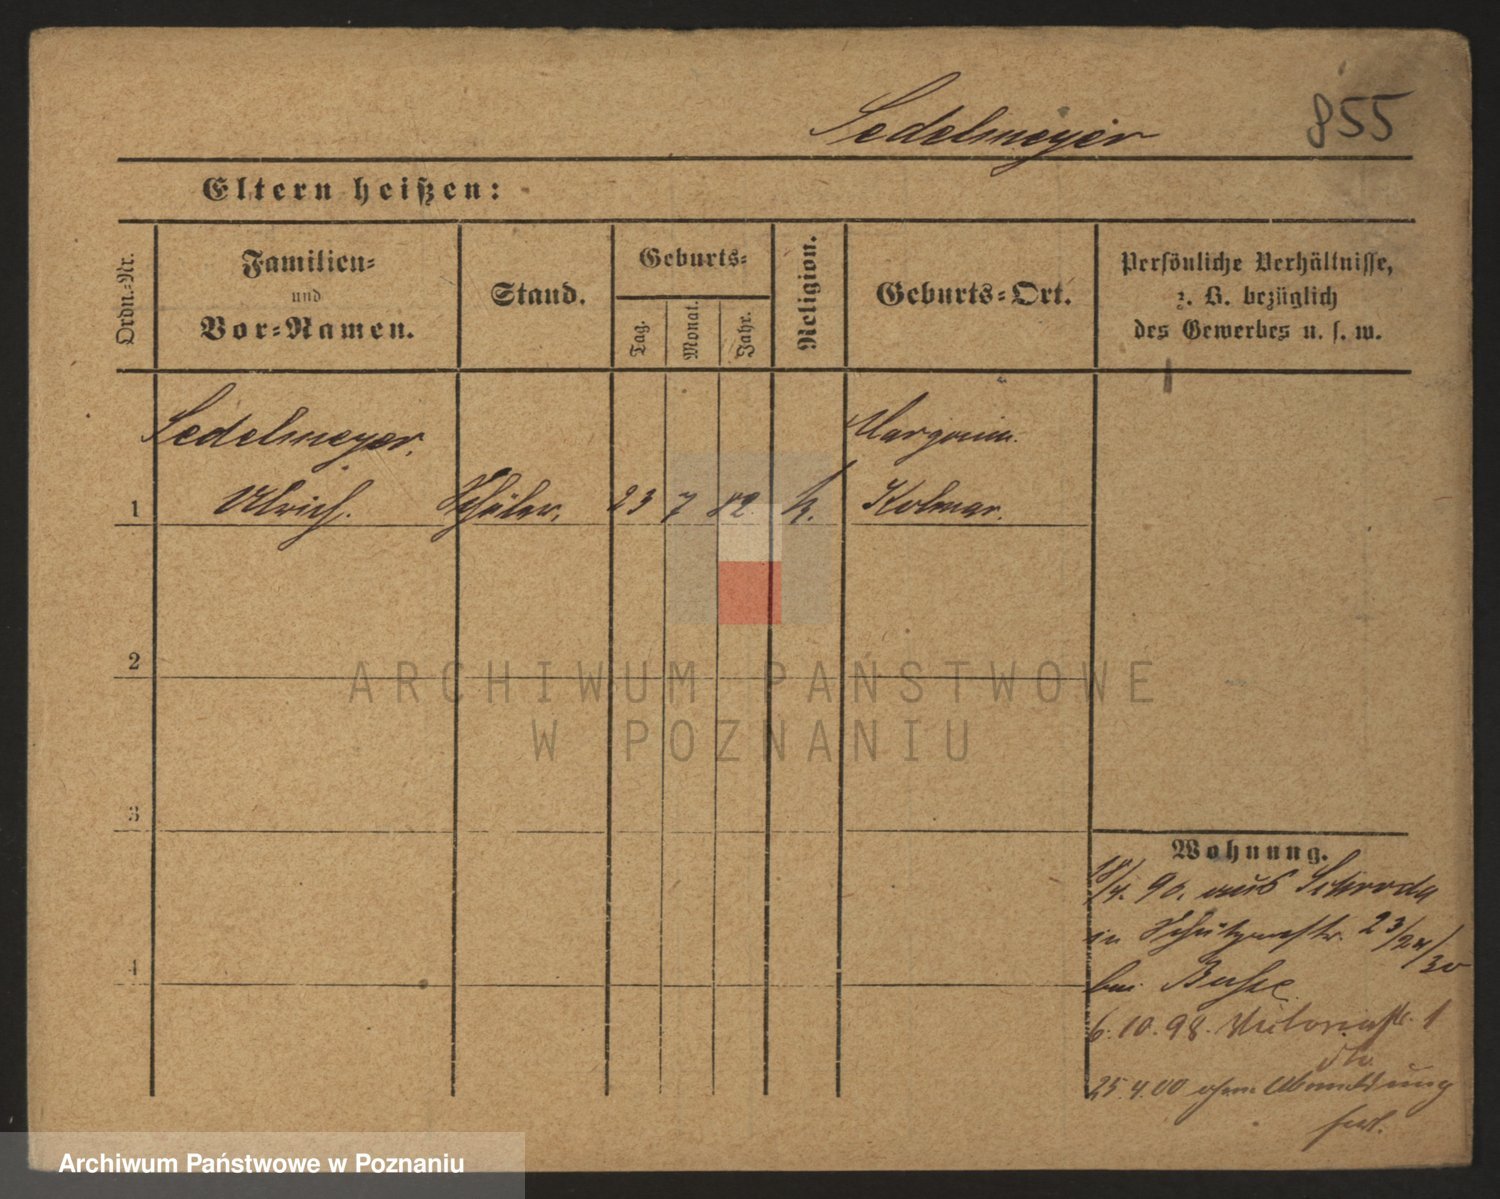 Sedelmeyer 855
Eltern heißen:
Ordn.-Nr.
Familien-
und
Vor-Namen.
Stand.
Geburts-
Tag.
Monat.
Jahr.
Religion.
Geburts-Ort.
Persönliche Verhältnisse,
z. B. bezüglich
des Gewerbes u. s. w.
Sedelmeyer, Margonin.
1 Ulrich. Schüler. 23 7 82. k. Kolmar.
2
3
4
ARCHIWUM PAŃSTWOWE
W POZNANIU
Wohnung.
18/4. 90. aus Schroda
in Schützenstr. 23/24/30
bei Busse
6.10.98. Victoriastr. 1
dto
25.4.00 ohne Abmeldung
fort.
Archiwum Państwowe w Poznaniu